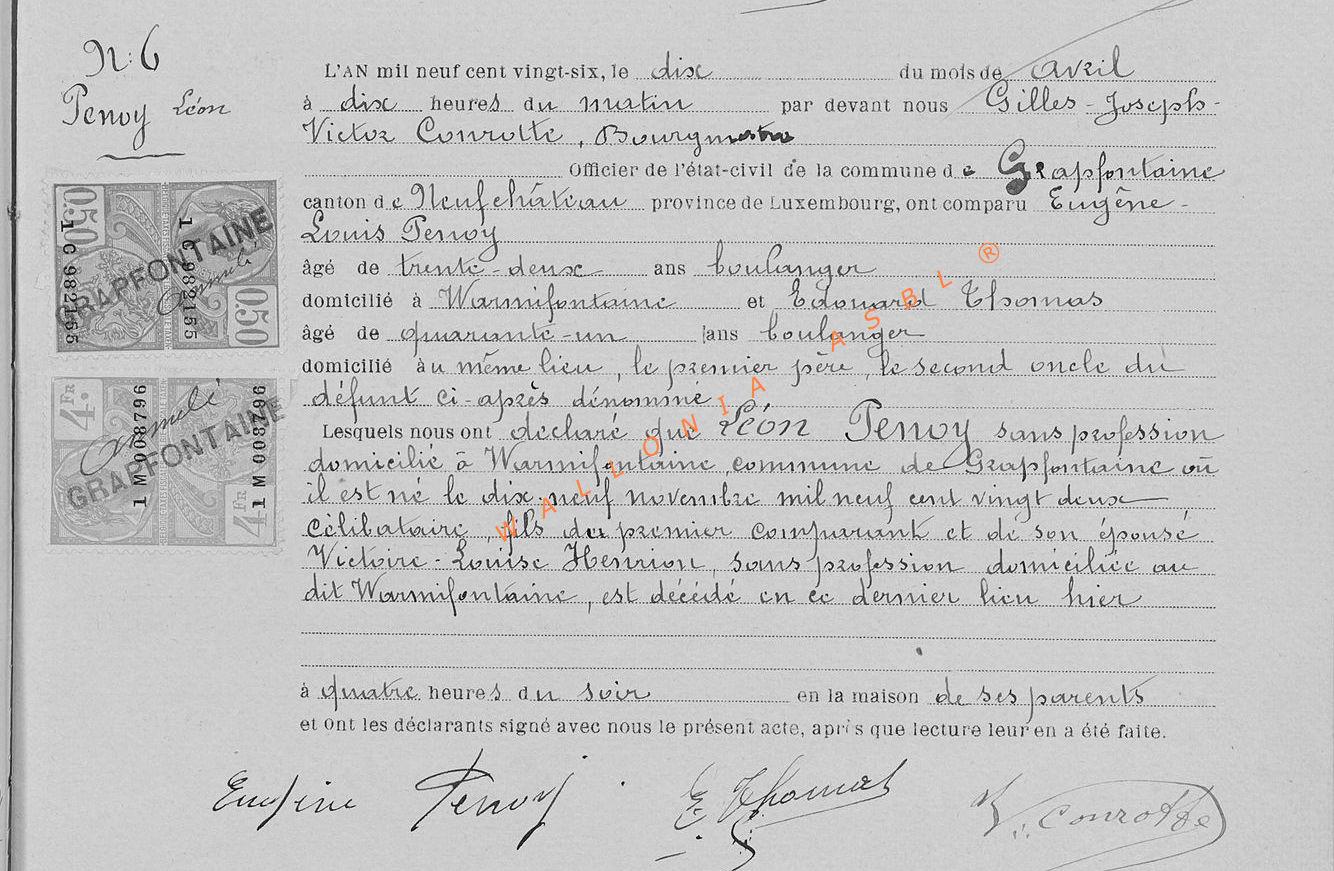 N: 6
Penoy Léon
L'AN mil neuf cent vingt-six, le dix du mois de avril
à dix heures du matin par devant nous Gilles-Joseph-
Victor Conrotte, Bourgmestre
Officier de l'état-civil de la commune de Grapfontaine
canton de Neufchâteau province de Luxembourg, ont comparu Eugène-
Louis Penoy
âgé de trente-deux ans boulanger
domicilié à Warmifontaine et Edouard Thomas
âgé de quarante-un ans boulanger
domicilié au même lieu, le premier père, le second oncle du
défunt ci-après dénommé
Lesquels nous ont declaré que Léon Penoy sans profession
domicilié à Warmifontaine commune de Grapfontaine où
il est né le dix-neuf novembre mil neuf cent vingt deux
célibataire, fils du premier comparant et de son épouse
Victoire-Louise Henrion, sans profession domiciliée au
dit Warmifontaine, est décédé en ce dernier lieu hier
à quatre heures du soir en la maison de ses parents
et ont les déclarants signé avec nous le présent acte, après que lecture leur en a été faite.
Eugène Penoy E. Thomas V. Conrotte
050
1 C 982155
1 C 982155
050
GRAPFONTAINE
annulé
4 FR
1 M 008796
1 M 008796
4 FR
GRAPFONTAINE
Annulé
WALLONIA ASBL ®